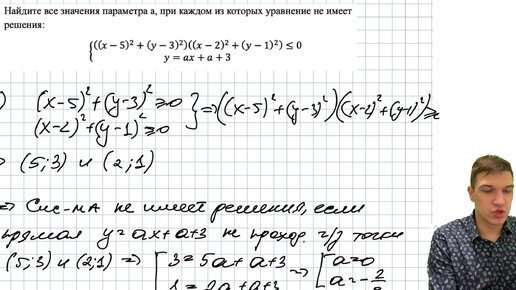 Найдите все значения параметра а, при каждом из которых уравнение не имеет
решения:
{((x − 5)² + (y − 3)²)((x − 2)² + (y − 1)²) ≤ 0
y = ax + a + 3
) (x-5)² + (y-3)² ≥ 0 } ⇒ ((x-5)² + (y-3)²)((x-2)² + (y-1)²) ≥
(x-2)² + (y-1)² ≥ 0
(5;3) и (2;1)
⇒ Сис-ма не имеет решения, если
прямая y = ax + a + 3 не проход. ч/з точки
(5;3) и (2;1) ⇒ [ 3 = 5a + a + 3 ⇒ [ a = 0
1 = 2a + a + 3 a = -2/3